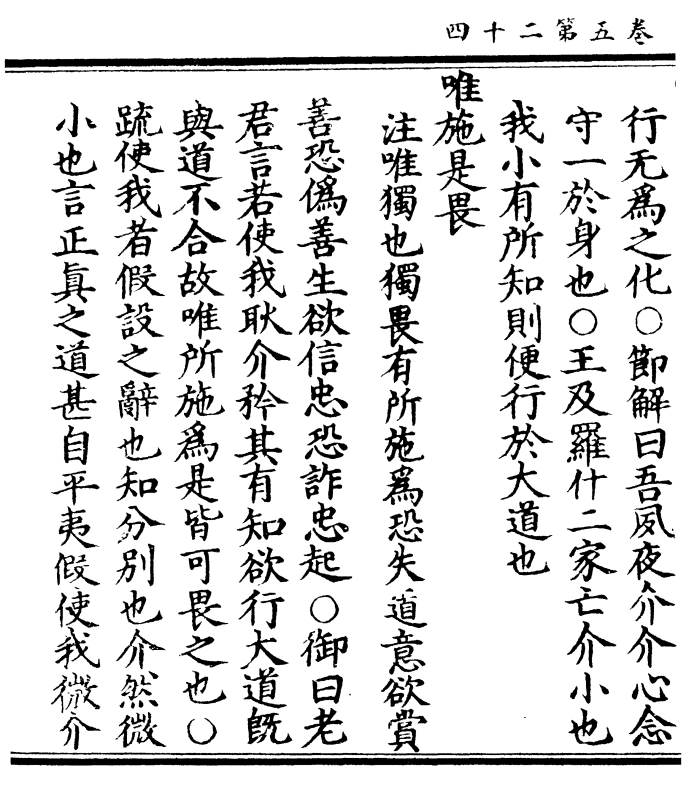 卷五第二十四
行无爲之化○節解曰吾夙夜介介心念
守一於身也○王及羅什二家亡介小也
我小有所知則便行於大道也
唯施是畏
注唯獨也獨畏有所施爲恐失道意欲賞
善恐僞善生欲信忠恐詐忠起○御曰老
君言若使我耿介矜其有知欲行大道旣
與道不合故唯所施爲是皆可畏之也○
䟽使我者假設之辭也知分別也介然微
小也言正眞之道甚自平夷假使我微介